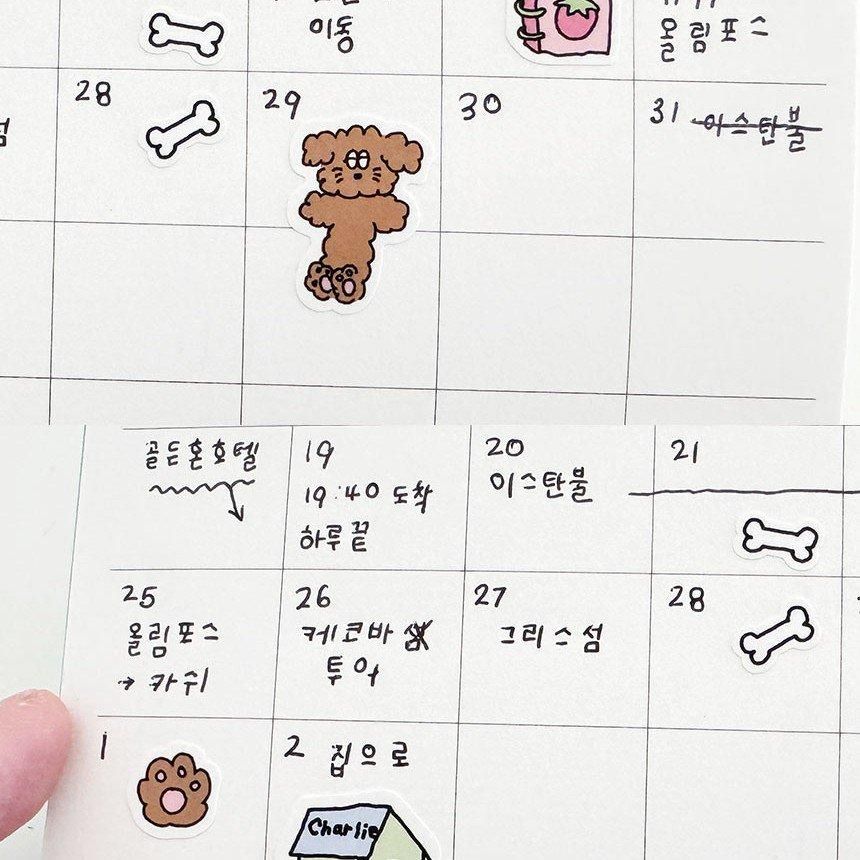 이동
올림포스
28
29
30
31 이스탄불
섬
골든혼호텔
19
19:40 도착
하루끝
20
이스탄불
21
25
올림포스
→ 카쉬
26
케코바 섬
투어
27
그리스섬
28
1
2 집으로
Charlie